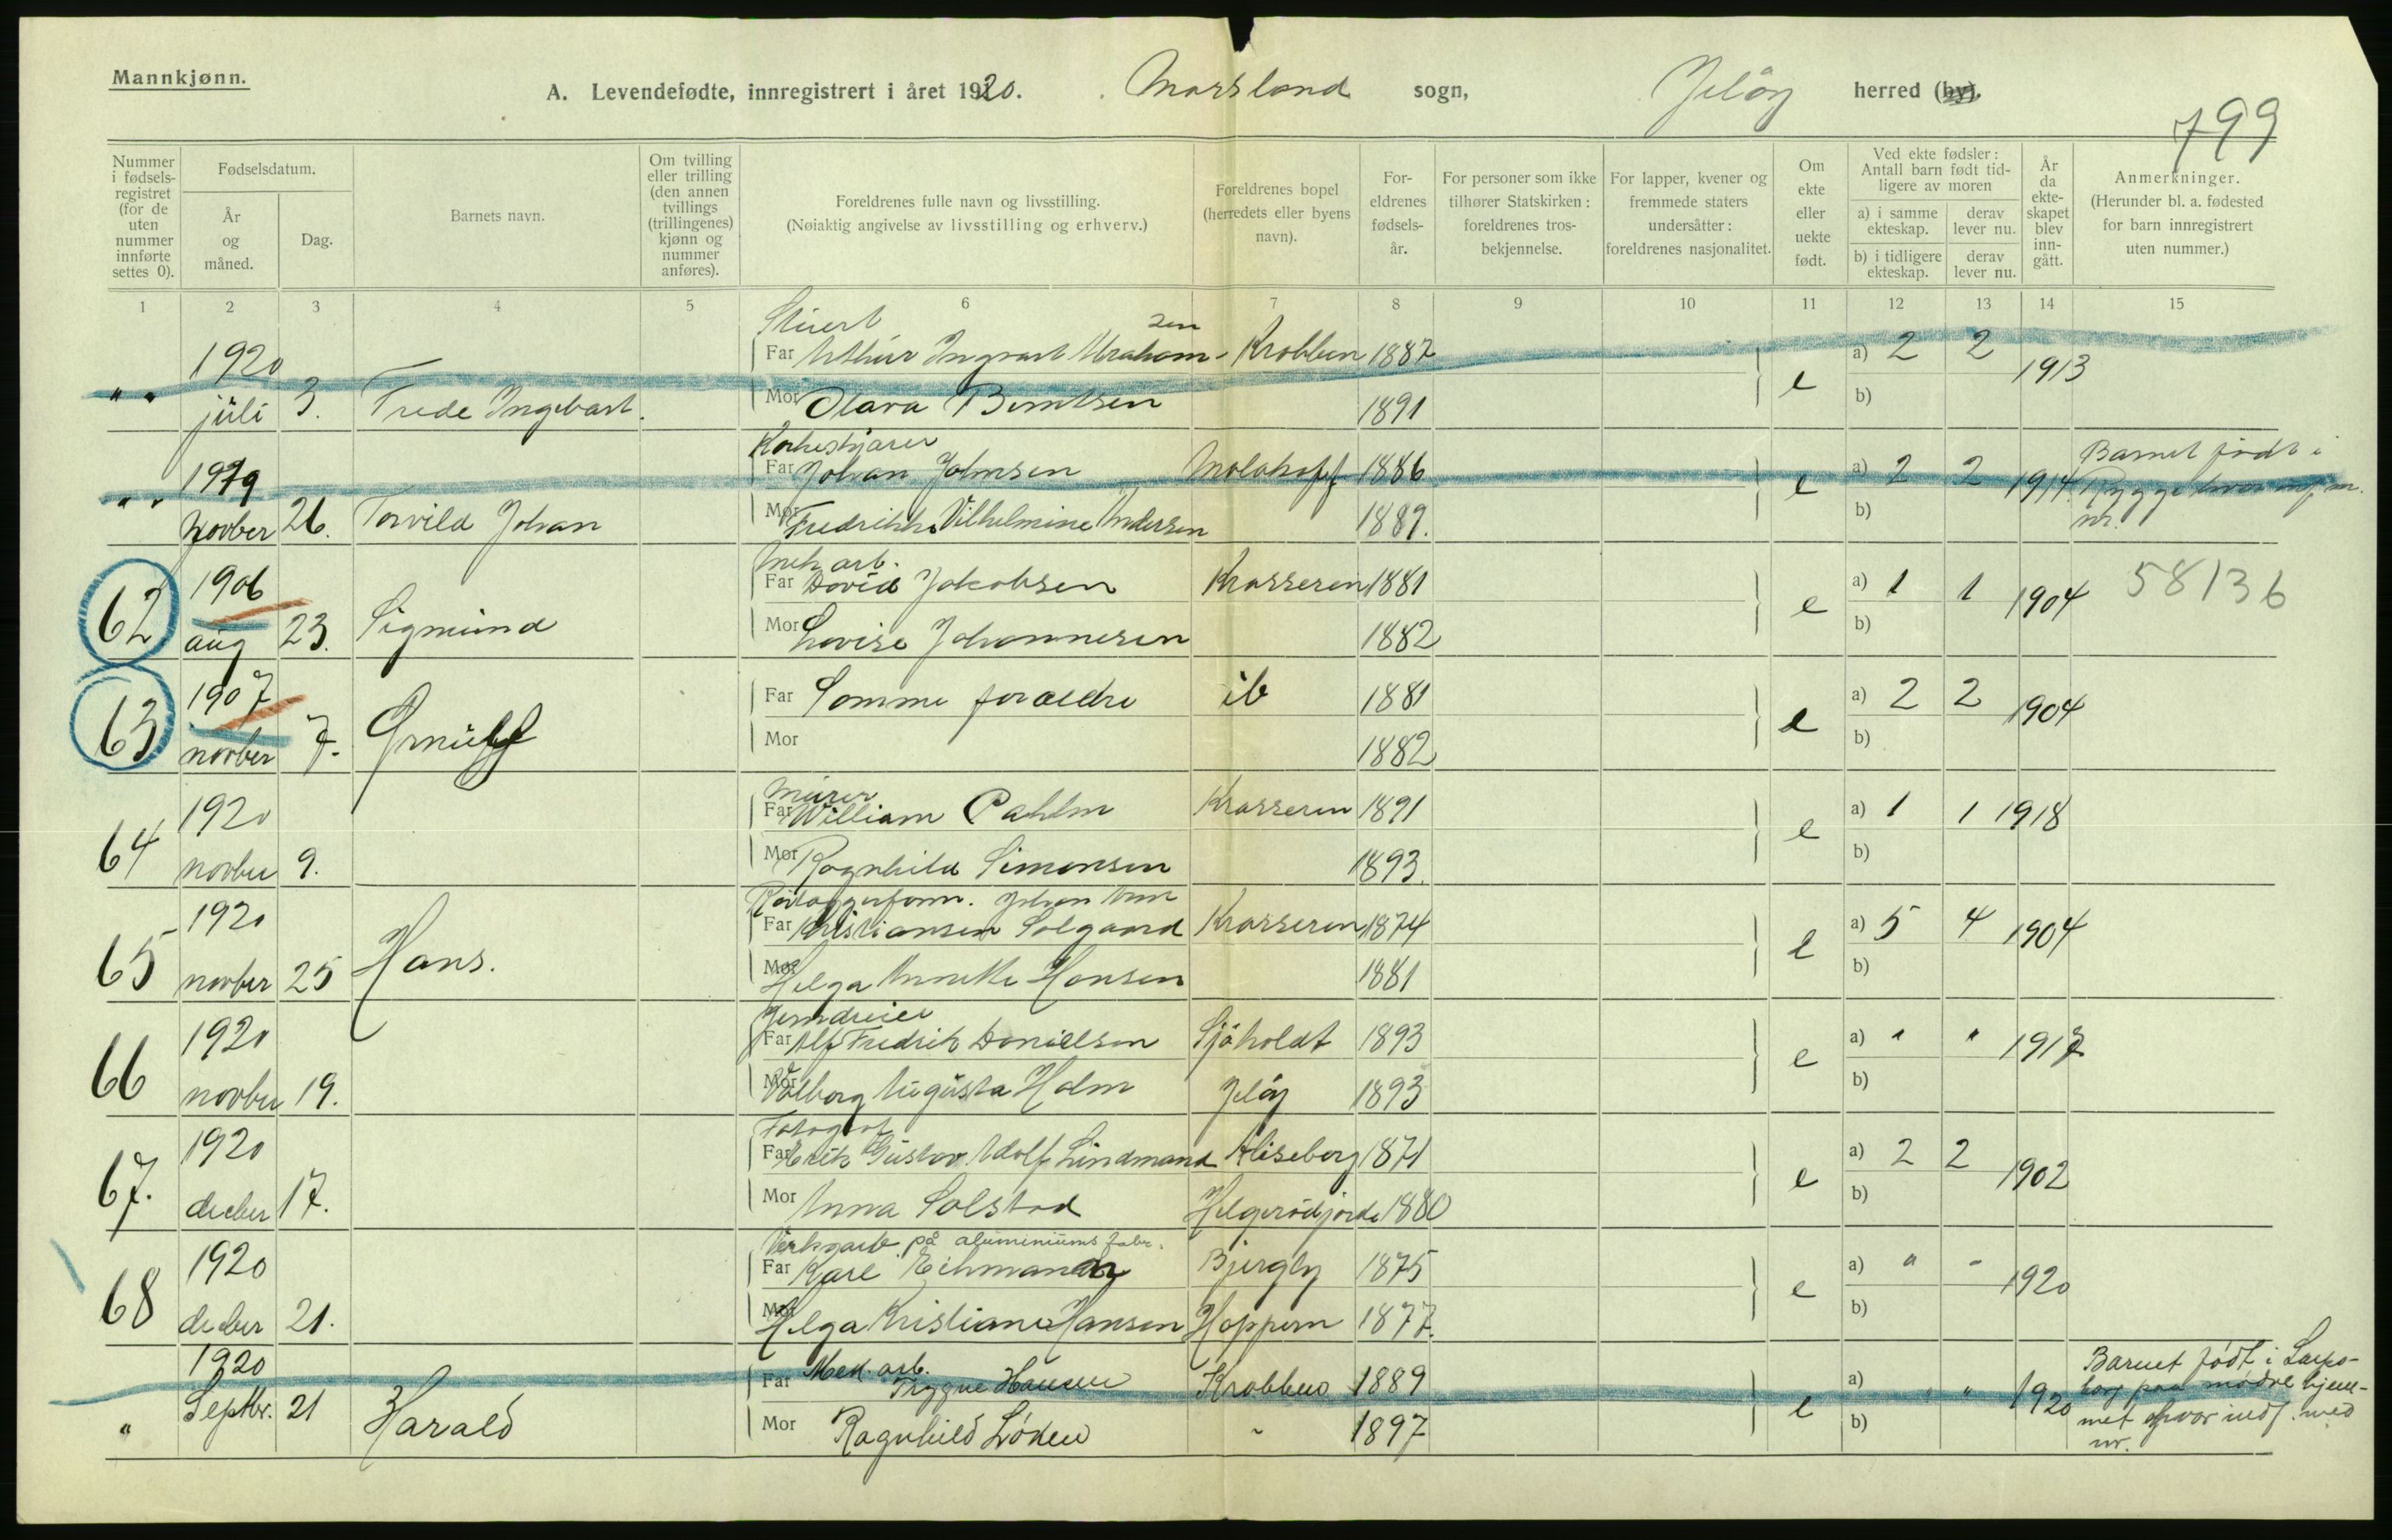 Mannkjønn.
A. Levendefødte, innregistrert i året 1920. Mossland sogn, Jeløy herred (by).
799
Nummer i fødselsregistret (for de uten nummer innførte settes 0).
Fødselsdatum.
År og måned.
Dag.
Barnets navn.
Om tvilling eller trilling (den annen tvillings (trillingenes) kjønn og nummer anføres).
Foreldrenes fulle navn og livsstilling.
(Nøiaktig angivelse av livsstilling og erhverv.)
Foreldrenes bopel (herredets eller byens navn).
Foreldrenes fødselsår.
For personer som ikke tilhører Statskirken: foreldrenes trosbekjennelse.
For lapper, kvener og fremmede staters undersåtter: foreldrenes nasjonalitet.
Om ekte eller uekte født.
Ved ekte fødsler: Antall barn født tidligere av moren
a) i samme ekteskap. derav lever nu.
b) i tidligere ekteskap. derav lever nu.
År da ekteskapet blev inngått.
Anmerkninger.
(Herunder bl. a. fødested for barn innregistrert uten nummer.)
1 2 3 4 5 6 7 8 9 10 11 12 13 14 15
Stuert
1920 Far Arthur Ingvart Abrahamsen Krobben 1887 a) 2 2 1913
" " juli 3. Frede Ingebart. Mor Olava Berntsen 1891 e b)
Korkeskjærer
1919 Far Johan Johnsen 1886 e a) 2 2 1914 Barnet født i
" " novber 26. Torvild Johan Mor Fredrikke Vilhelmine Andersen 1889. b) Rygge hvor indf m. nr.
Mek arb.
62 1906 Far David Jakobsen Krosseren 1881 a) 1 1 1904 58136
aug 23. Sigmund Mor Lovise Johannesen 1882 e b)
63 1907 Far Samme forældre ib 1881 a) 2 2 1904
novber 7. Ørnulf Mor 1882 e b)
Murer
64 1920 Far William Pahlm Krosseren 1891 a) 1 1 1918
novber 9. Mor Ragnhild Simensen 1893. e b)
65 1920 Far Kristiansen Solgaard Krosseren 1874 a) 5 4 1904
novber 25 Hans. Mor Helga Annette Hansen 1881 e b)
Jerndreier
66 1920 Far Alf Fredrik Danielsen Sjøholdt 1893 a) " "
novber 19. Mor Valborg Augusta Holm Jeløy 1893 e b)
Fotograf
67. 1920 Far Erik Gustav Adolf Lindmand Aliseberg 1871 a) 2 2 1902
decber 17. Mor Anna Solstad Helgerødjorde 1880 e b)
Verksarb. på aluminiums fabr.
68 1920 Far Karl Eihmann Bjergby 1875 a) " - 1920
decber 21. Mor Helga Kristiane Hansen Hoppern 1877. e b)
Mek. arb.
1920 Far Trygve Hansen Krobben 1889 a) " " 1920 Barnet født i
" Septbr. 21 Harald Mor Ragnhild Løken " 1897 e b) paa mødrehjemmet hvor indf. med nr.